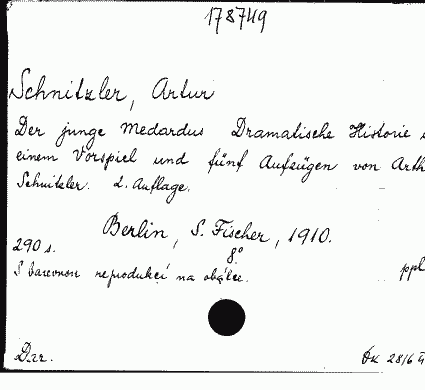 178749
Schnitzler, Artur
Der junge Medardus Dramatische Historie
einem Vorspiel und fünf Aufzügen von Arth
Schnitzler. 2. Auflage.
Berlin, S. Fischer, 1910.
290 s. 8°
S barevnou reprodukcí na obálce. ppl
Drr. Ok 28/6